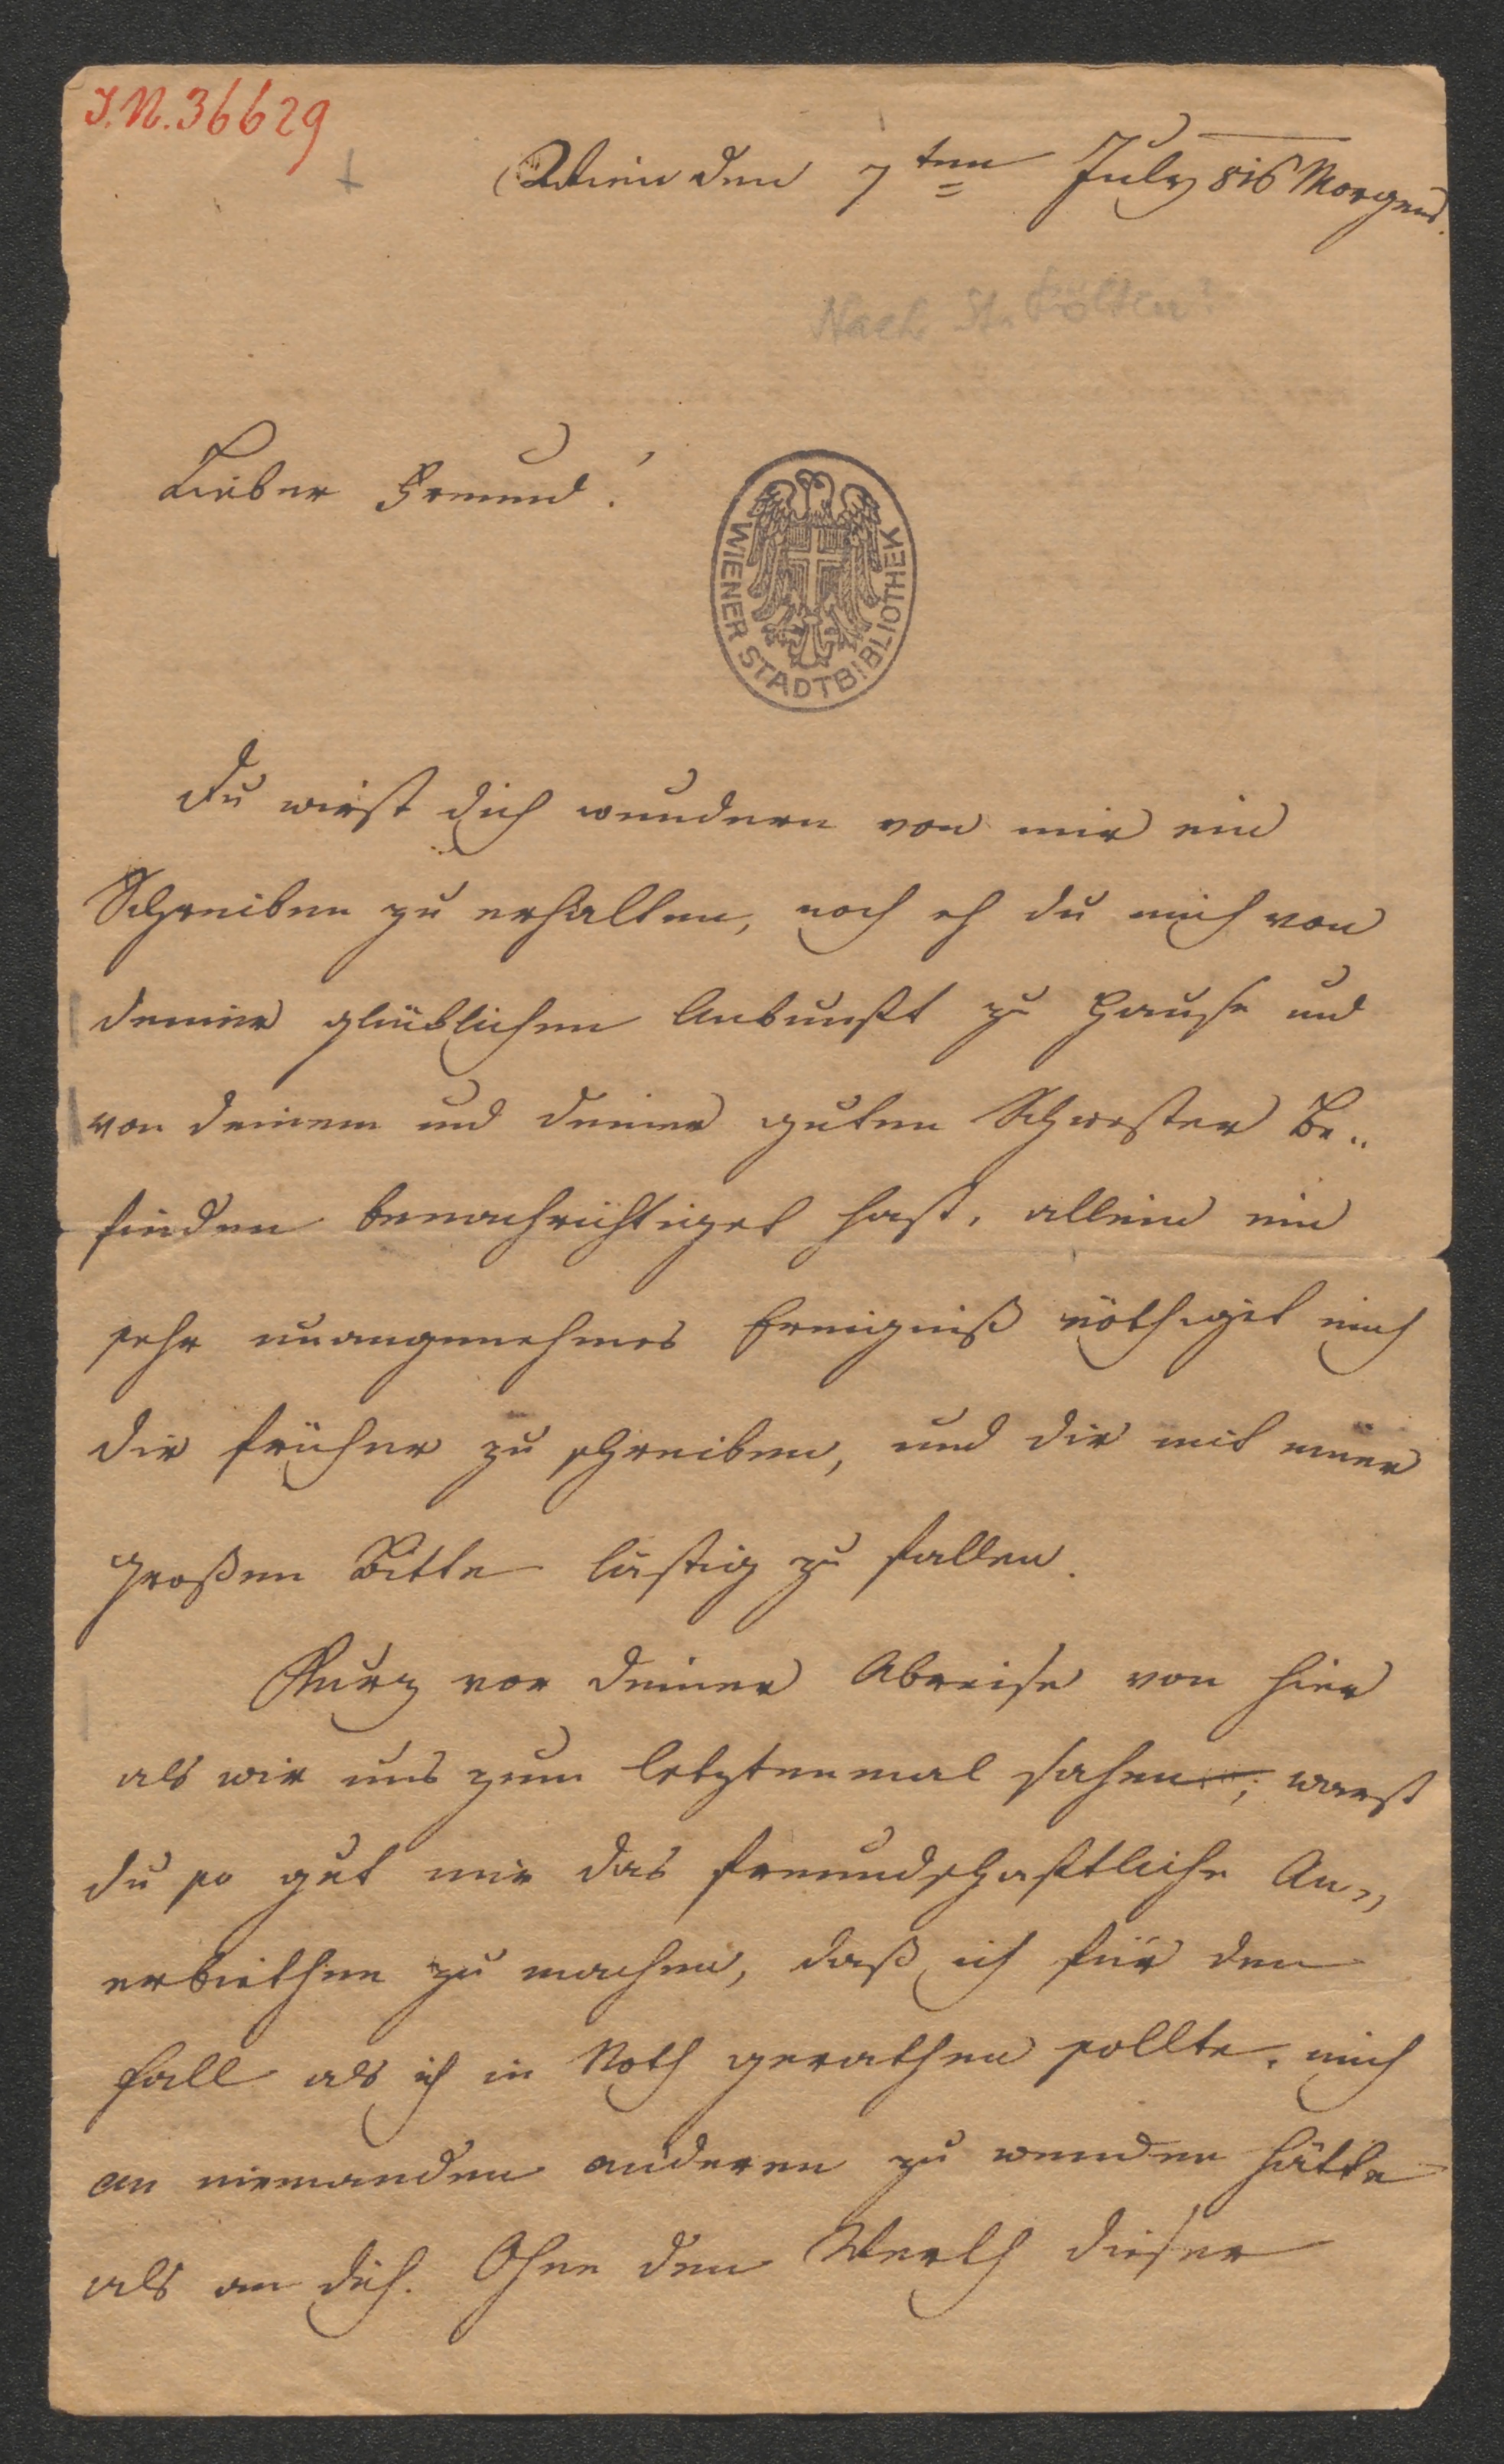 I.N. 36629
Wien den 7ten July 816 Morgens.
Nach St. Pölten?
Lieber Freund!
WIENER STADTBIBLIOTHEK
Du wirst dich wundern von mir ein
Schreiben zu erhalten, noch eh du mich von
deiner glücklichen Ankunft zu Hause und
von deinem und deiner guten Schwester Be„
finden benachrichtiget hast, allein ein
sehr unangenehmes Ereigniß nöthiget mich
dir früher zu schreiben, und dir mit einer
großen Bitte lästig zu fallen.
Kurz vor deiner Abreise von hier
als wir uns zum letztenmal sahen, warst
du so gut mir das freundschaftliche An„
erbiethen zu machen, daß ich für den
Fall als ich in Noth gerathen sollte, mich
an niemanden anderen zu wenden hätte
als an dich. Ohne den Werth dieser